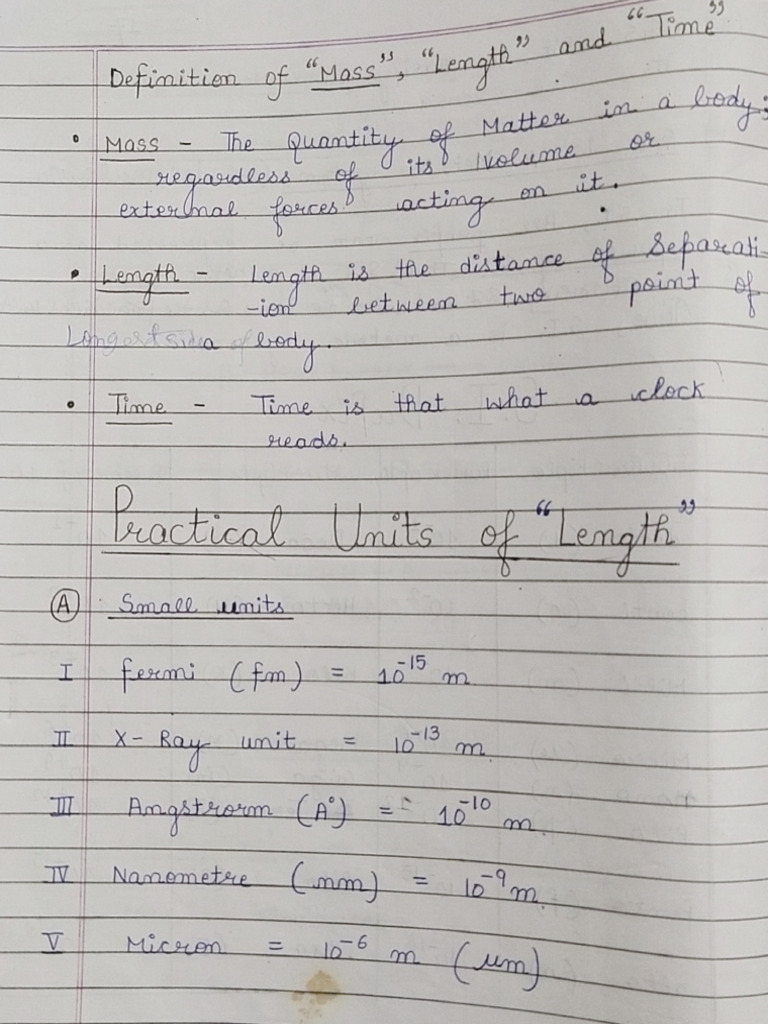 Definition of “Mass”, “Length” and “Time”
• Mass - The Quantity of Matter in a body;
regardless of its volume or
external forces acting on it.
• Length - Length is the distance of Separati
-ion between two point of
a body.
• Time - Time is that what a clock
reads.
Practical Units of “Length”
(A) Small units
I fermi (fm) = 10⁻¹⁵ m
II X-Ray unit = 10⁻¹³ m
III Angstrorm (A°) = 10⁻¹⁰ m.
IV Nanometre (nm) = 10⁻⁹ m.
V Micron = 10⁻⁶ m (μm)